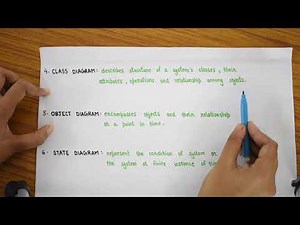 4. CLASS DIAGRAM: describes structure of a system's classes, their
attributes, operations and relationship among objects.
5. OBJECT DIAGRAM: encompasses objects and their relationship
at a point in time.
6. STATE DIAGRAM: represent the condition of system or
the system at finite instance of time